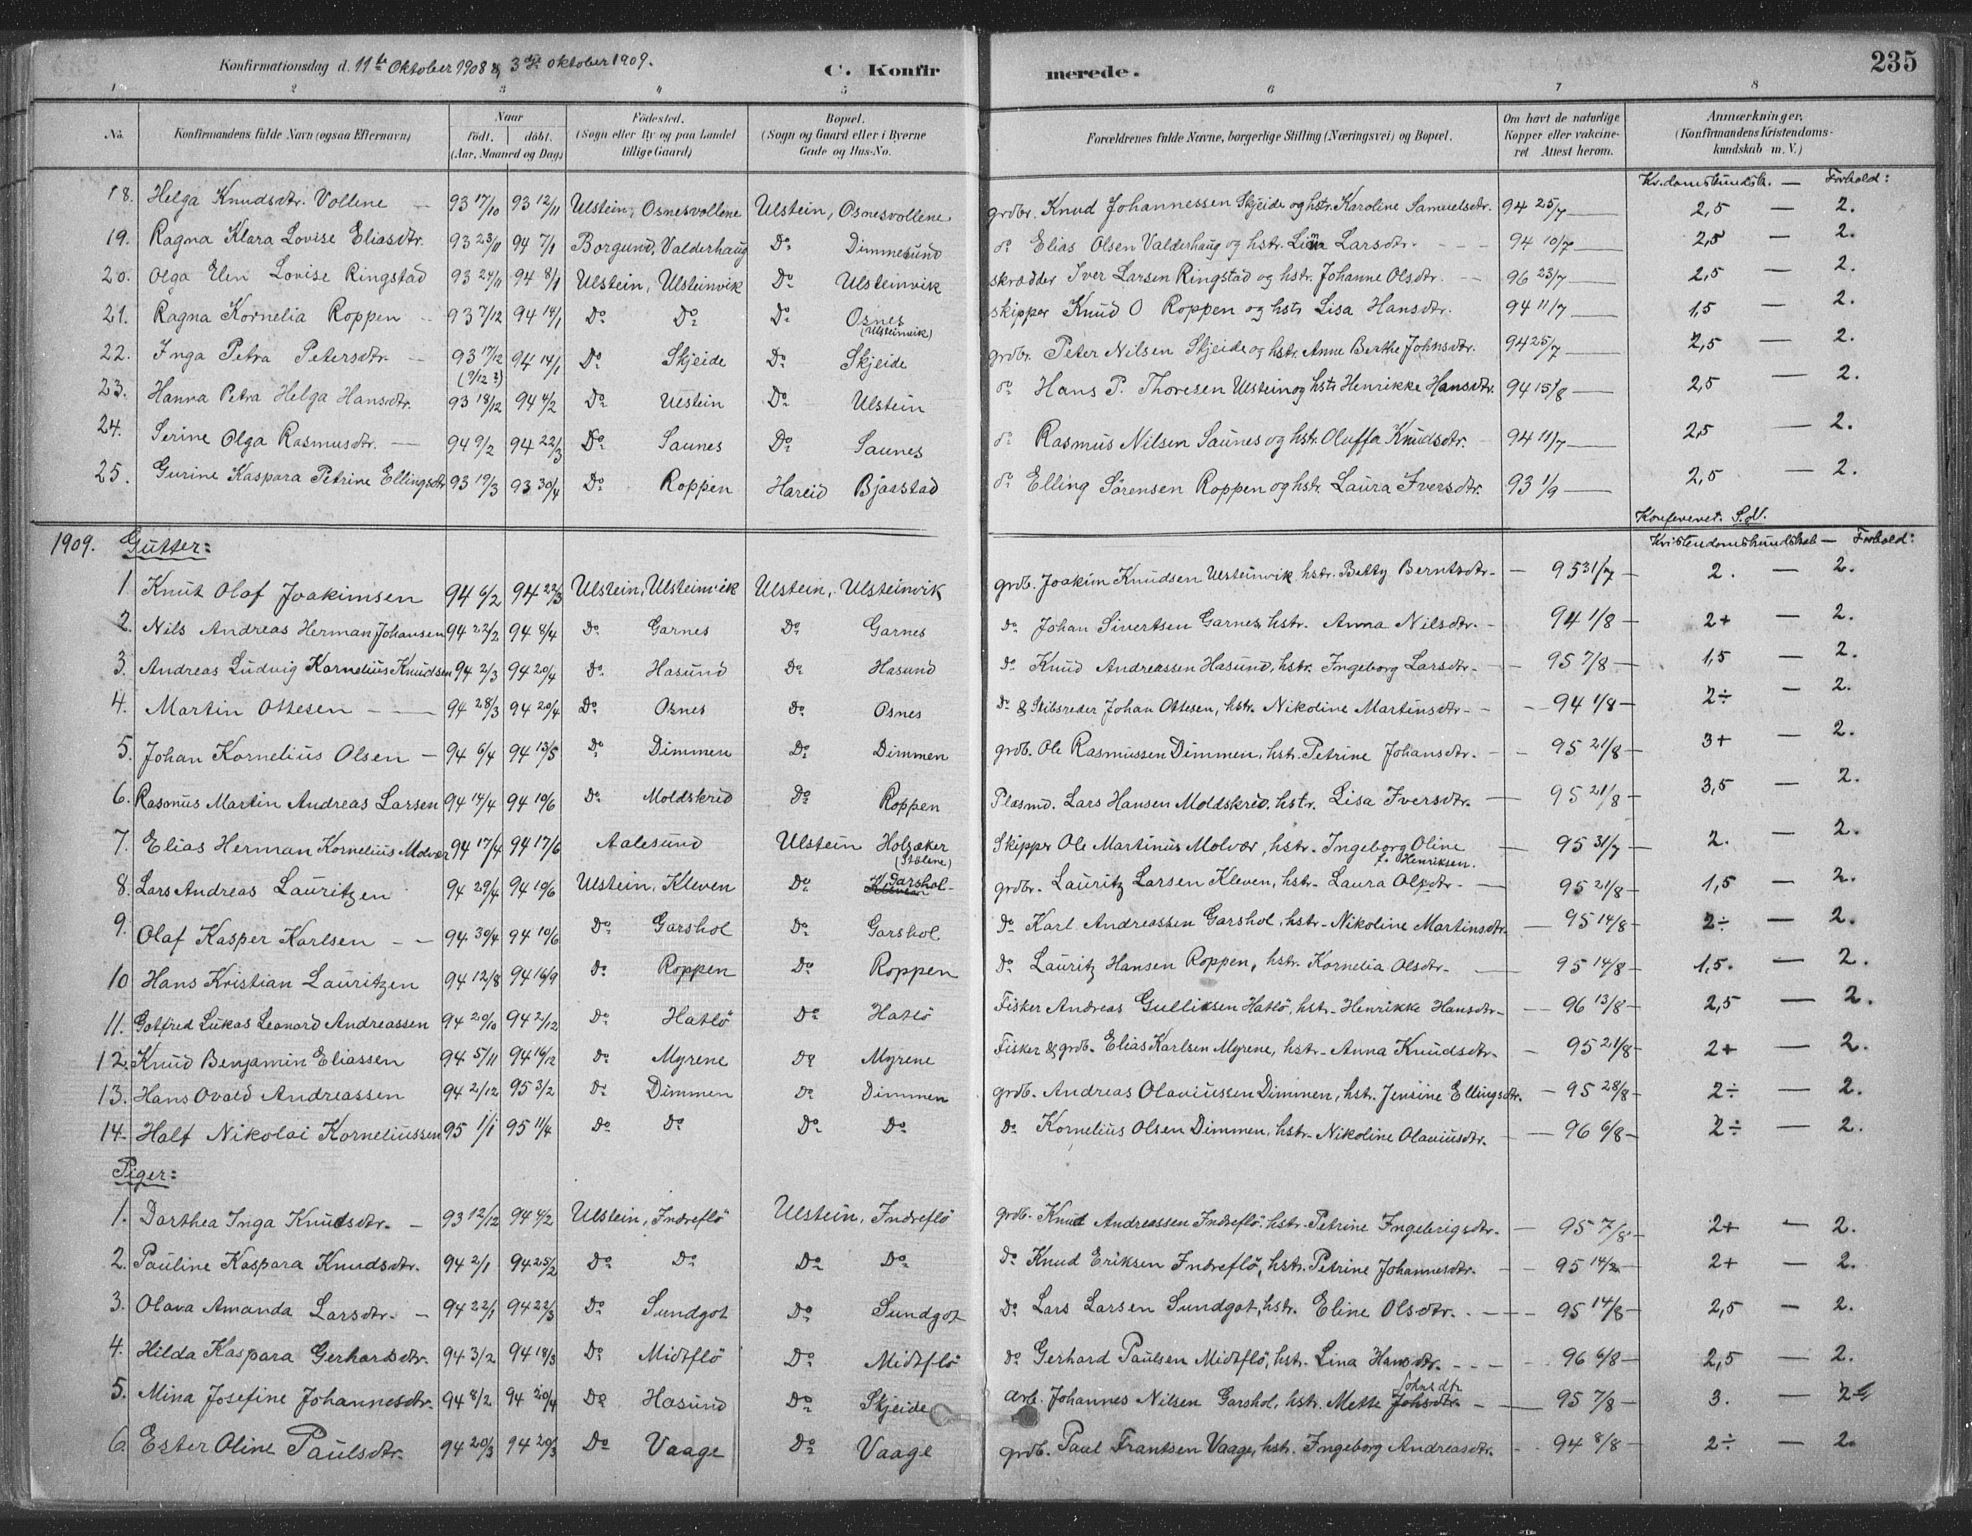 Konfirmationsdag d. 11te Oktober 1908 & 3die Oktober 1909.
C. Konfirmerede.
235
1 2 3 4 5 6 7 8
No. Konfirmandens fulde Navn (ogsaa Efternavn) Naar födt. döbt. (Aar, Maaned og Dag) Födested. (Sogn eller By og paa Landet tillige Gaard) Bopæl. (Sogn og Gaard eller i Byerne Gade og Hus-No. Forældrenes fulde Navne, borgerlige Stilling (Næringsvei) og Bopæl. Om havt de naturlige Kopper eller vakcineret Attest herom. Anmærkninger. (Konfirmandens Kristendomskundskab m. V.)
Kr.domskundsk. — Forhold:
18. Helga Knudsdtr. Vollene — 93 17/10 93 12/11 Ulstein, Osnesvollene Ulstein, Osnesvollene grdbr. Knud Johannessen Skjeide og hstr. Karoline Samuelsdtr. 94 25/7 — 2,5 — 2.
19. Ragna Klara Lovise Eliasdtr. 93 23/11 94 7/1 Borgund, Valderhaug Do Dimmesund do Elias Olsen Valderhaug og hstr. Larsdtr. 94 10/7 — 2,5 — 2.
20. Olga Elen Lovise Ringstad 93 24/11 94 8/1 Ulstein, Ulsteinvik Do Ulsteinvik skrædder Iver Larsen Ringstad og hstr. Johanne Olsdtr. 96 23/7 — 2,5 — 2.
21. Ragna Kornelia Roppen 93 7/12 94 14/1 Do Do Do Osnes (Ulsteinvik) skipper Knud O Roppen og hstr Lisa Hansdtr. 94 11/7 — 1,5 — 2.
22. Inga Petra Petersdtr. — 93 17/12 (9/12 ?) 94 14/1 Do Skjeide Do Skjeide grdbr. Peter Nilsen Skjeide og hstr. Anne Berthe Johnsdtr. 94 25/7 — 2,5 — 2.
23. Hanna Petra Helga Hansdtr. 93 18/12 94 4/2 Do Ulstein Do Ulstein do Hans P. Thoresen Ulstein og hstr Henrikke Hansdtr. 94 15/8 — 2,5 — 2.
24. Serine Olga Rasmusdtr. — 94 9/2 94 22/3 Do Saunes Do Saunes do Rasmus Nilsen Saunes og hstr. Oluffa Knudsdtr. 94 11/7 — 2,5 — 2.
25. Gurine Kaspara Petrine Ellingsdtr 93 19/3 93 30/4 Do Roppen Hareid Bjaastad do Elling Sörensen Roppen og hstr. Laura Iversdtr. 93 1/9 — 2,5 — 2.
Konfereret. S.N.
1909. Gutter: Kristendomskundskab — Forhold:
1. Knut Olaf Joakimsen 94 6/2 94 22/3 Ulstein, Ulsteinvik Ulstein, Ulsteinvik grdb. Joakim Knudsen Ulsteinvik, hstr. Betty Berntsdtr. — 95 31/7 — 2. — 2.
2. Nils Andreas Herman Johansen 94 22/2 94 8/4 Do Garnes Do Garnes Do Johan Sivertsen Garnes, hstr. Anna Nilsdtr. - 94 1/8 — 2+ — 2.
3. Andreas Ludvig Kornelius Knudsen 94 2/3 94 20/4 Do Hasund Do Hasund Do Knud Andreassen Hasund, hstr. Ingeborg Larsdtr. - 95 7/8 — 1,5 — 2.
4. Martin Ottesen - — 94 28/3 94 20/4 Do Osnes Do Osnes Do & Johan Ottesen, hstr. Nikoline Martinsdtr. - 94 1/8 — 2÷ — 2.
5. Johan Kornelius Olsen — 94 6/4 94 13/5 Do Dimmen Do Dimmen grdb. Ole Rasmussen Dimmen, hstr. Petrine Johansdtr. - 95 21/8 — 3+ — 2.
6. Rasmus Martin Andreas Larsen 94 14/4 94 10/6 Do Moldskred Do Roppen Plasmd. Lars Hansen Moldskred, hstr. Lisa Iversdtr. — 95 21/8 — 3,5 — 2.
7. Elias Herman Kornelius Molvær 94 17/4 94 17/6 Aalesund Ulstein Holsæker (Stölene) Skipper Ole Martinus Molvær, hstr. Ingeborg Oline f. Henriksen. — 95 31/7 — 2. — 2.
8. Lars Andreas Lauritzen 94 29/4 94 10/6 Ulstein, Kleven Do Garshol grdbr. Lauritz Larsen Kleven, hstr. Laura Olsdtr. — 95 21/8 — 1,5 — 2.
9. Olaf Kasper Karlsen - - 94 30/4 94 10/6 Do Garshol Do Garshol Do Karl Andreassen Garshol, hstr. Nikoline Martinsdtr. — 95 14/8 — 2÷ — 2.
10 Hans Kristian Lauritzen 94 12/8 94 16/9 Do Roppen Do Roppen Do Lauritz Hansen Roppen, hstr. Kornelia Olsdtr. — 95 14/8 — 1,5. — 2.
11. Gotfred Lukas Leonard Andreassen 94 20/10 94 2/12 Do Hatlö Do Hatlö Fisker Andreas Gulliksen Hatlö, hstr. Henrikke Hansdtr. - 96 13/8 — 2,5 — 2.
12. Knud Benjamin Eliassen 94 5/11 94 16/12 Do Myrene Do Myrene Fisker & grdb. Elias Karlsen Myrene, hstr. Anna Knudsdtr. - 95 21/8 — 2+ — 2.
13. Hans Ovald Andreassen 94 2/12 95 3/2 Do Dimmen Do Dimmen grdb. Andreas Olaviussen Dimmen, hstr. Jensine Ellingsdtr. — 95 28/8 — 2÷ — 2.
14. Half Nikolai Korneliussen 95 1/1 95 11/4 Do Do Do Do Do Kornelius Olsen Dimmen, hstr. Nikoline Olaviusdtr. — 96 6/8 — 2÷ — 2.
Piger:
1. Dorthea Inga Knudsdtr. — 93 12/12 94 4/2 Ulstein, Indreflö Ulstein, Indreflö grdb. Knud Andreassen Indreflö, hstr. Petrine Ingebrigsdtr. — 95 7/8 — 2+ — 2.
2. Pauline Kaspara Knudsdtr. 94 2/1 94 25/2 Do Do Do Do Do Knud Eriksen Indreflö, hstr. Petrine Johannesdtr. - 95 14/8 2+ — 2.
3. Olava Amanda Larsdtr. — 94 22/1 94 22/3 Do Sundgot Do Sundgot Do Lars Larsen Sundgot, hstr. Eline Olsdtr. - 95 14/8 — 2,5 — 2.
4. Hilda Kaspara Gerhardsdtr. 94 3/2 94 18/3 Do Midtflö Do Midtflö Do Gerhard Paulsen Midtflö, hstr. Lina Hansdtr. - 96 6/8 — 2,5 — 2.
5. Mina Josefine Johannesdtr. 94 8/2 94 20/4 Do Hasund Do Skjeide Arb. Johannes Nilsen Garshol, hstr. Mette Johsdtr. Johnsdtr - 95 7/8 — 3. — 2
6. Ester Oline Paulsdtr. 94 20/3 94 20/3 Do Vaage Do Vaage grdb. Paul Frantsen Vaage, hstr. Ingeborg Andreasdtr. - 94 8/8 — 2÷ — 2.